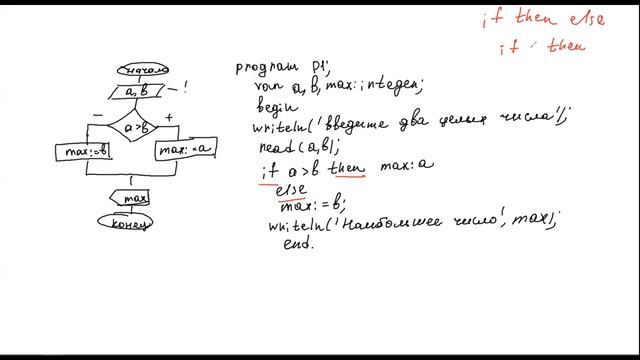 if then else
if then
начало
a, b
— !
— +
a > b
max:=b
max:=a
max
конец
program D1;
var a, b, max: integer;
begin
writeln('введите два целых числа');
read(a,b);
if a>b then max:a
else
max:=b;
writeln('Наибольшее число', max);
end.